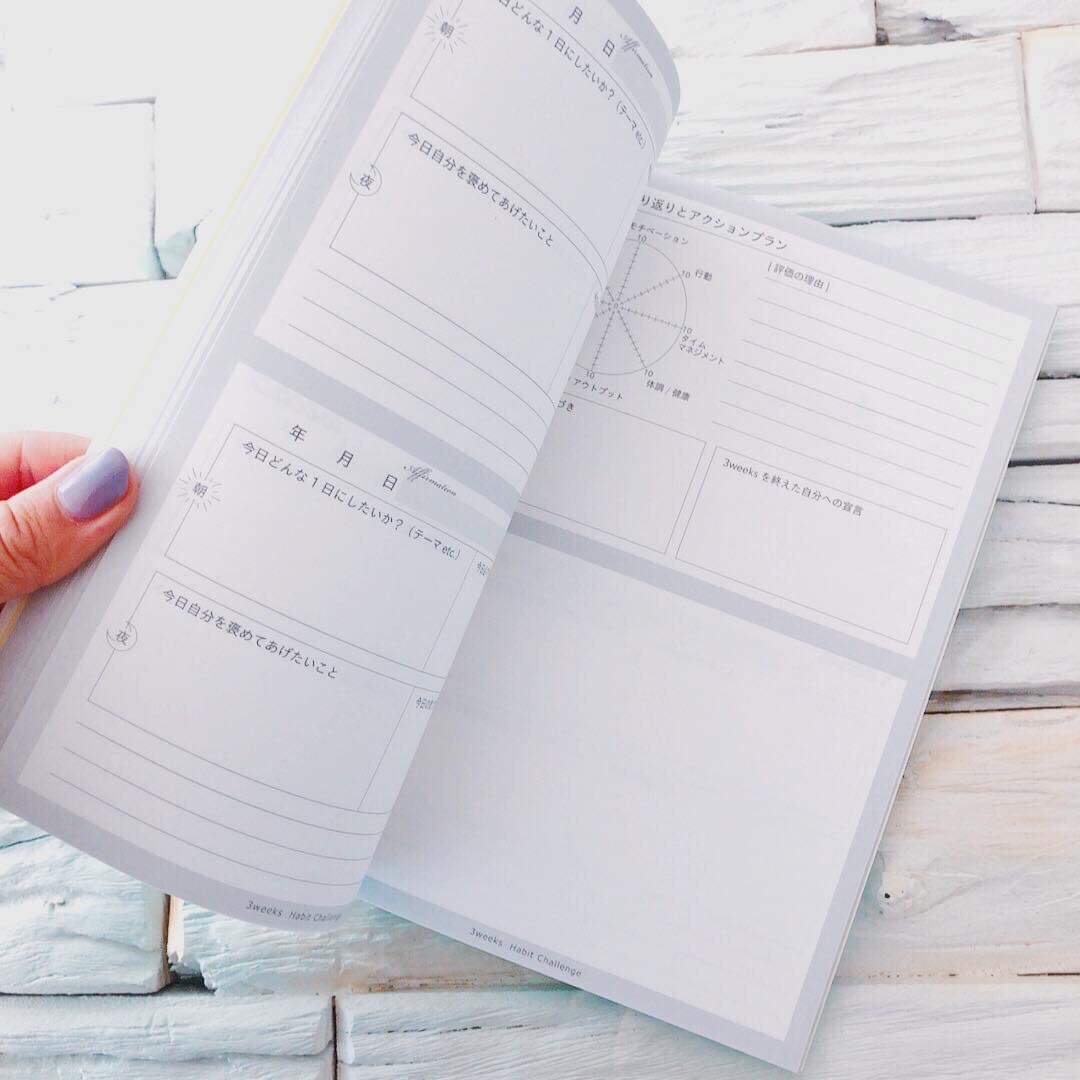 月 日 Affirmation
朝
日どんな1日にしたいか？（テーマ etc.）
夜
今日自分を褒めてあげたいこと
年 月 日 Affirmation
朝
今日どんな1日にしたいか？（テーマ etc.）
夜
今日自分を褒めてあげたいこと
3weeks Habit Challenge
り返りとアクションプラン
モチベーション
10
10 行動
10
タイム
マネジメント
10
体調 / 健康
10
アウトプット
0
[ 評価の理由 ]
づき
3weeks を終えた自分への宣言
3weeks Habit Challenge